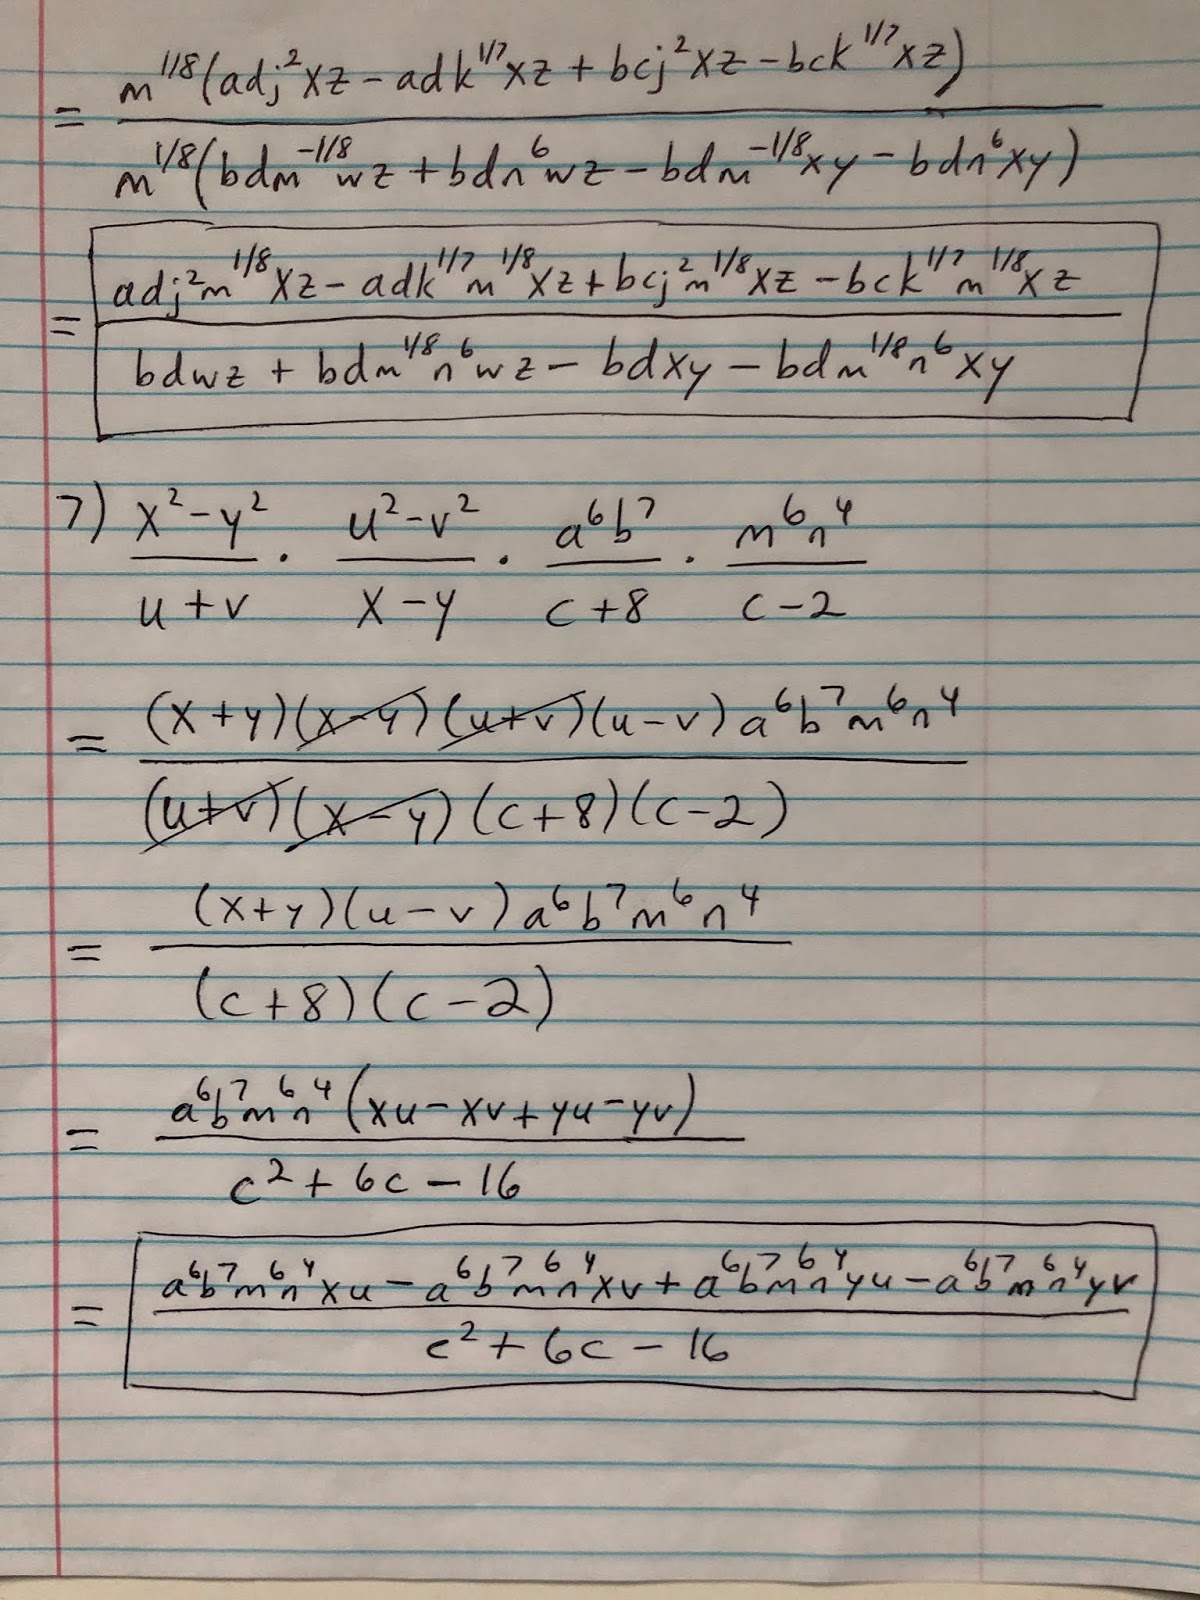 m^1/8(adj²xz - adk^1/7xz + bcj²xz - bck^1/7xz)
=
m^1/8(bdm^-1/8wz + bdn⁶wz - bdm^-1/8xy - bdn⁶xy)
adj²m^1/8xz - adk^1/7m^1/8xz + bcj²m^1/8xz - bck^1/7m^1/8xz
=
bdwz + bdm^1/8n⁶wz - bdxy - bdm^1/8n⁶xy
7) x²-y² . u²-v² . a⁶b⁷ . m⁶n⁴
u+v x-y c+8 c-2
(x+y)(x-y)(u+v)(u-v)a⁶b⁷m⁶n⁴
=
(u+v)(x-y)(c+8)(c-2)
(x+y)(u-v)a⁶b⁷m⁶n⁴
=
(c+8)(c-2)
a⁶b⁷m⁶n⁴(xu-xv+yu-yv)
=
c²+6c-16
a⁶b⁷m⁶n⁴xu - a⁶b⁷m⁶n⁴xv + a⁶b⁷m⁶n⁴yu - a⁶b⁷m⁶n⁴yv
=
c²+6c-16